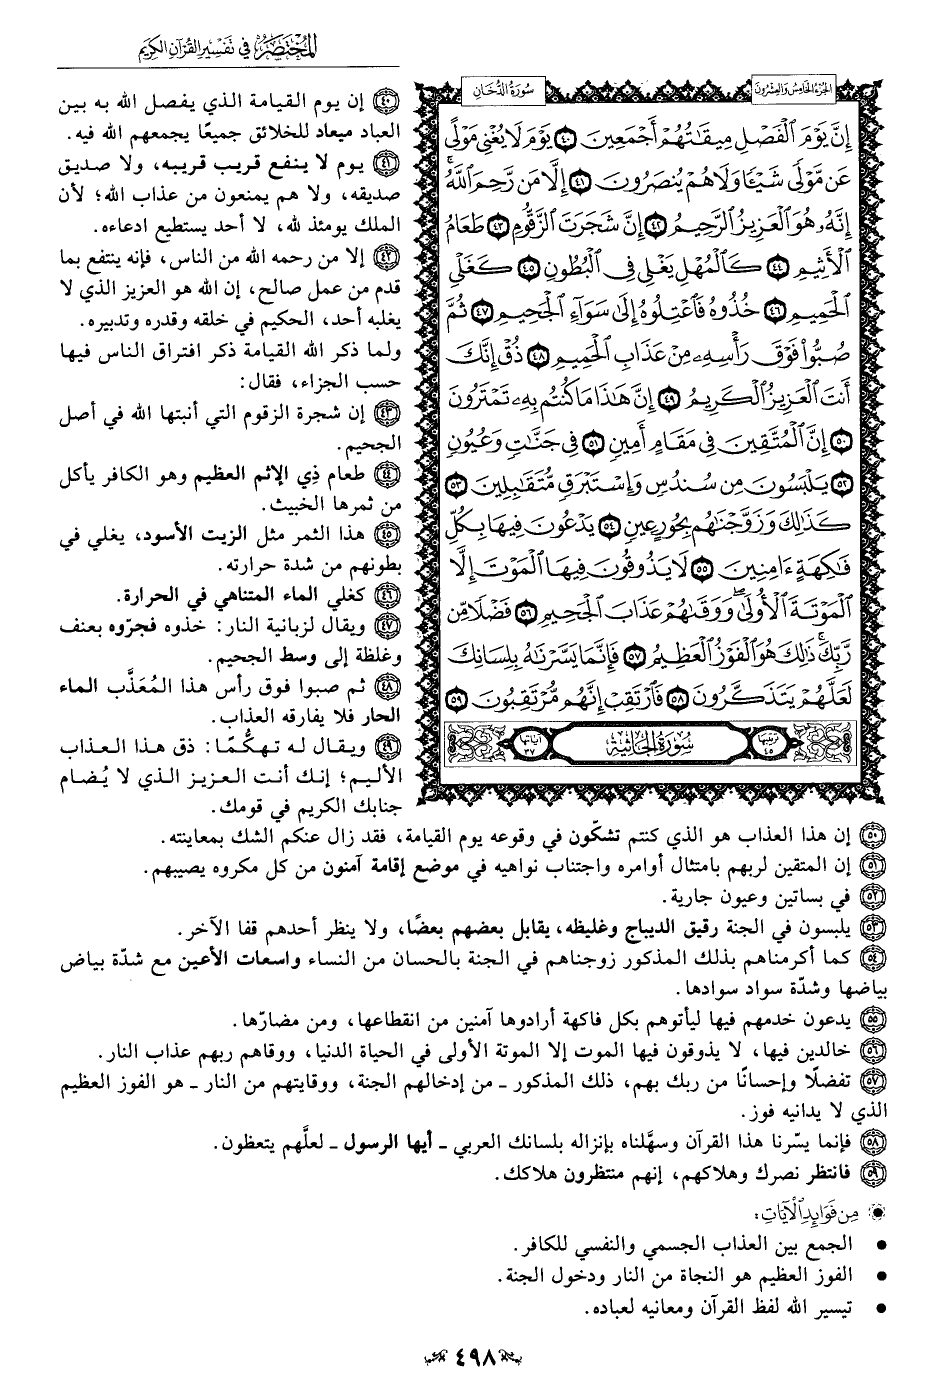 المختصر في تفسير القرآن الكريم
الجزء الخامس والعشرون
سورة الدخان
إِنَّ يَوْمَ ٱلْفَصْلِ مِيقَٰتُهُمْ أَجْمَعِينَ ٤٠ يَوْمَ لَا يُغْنِى مَوْلًى
عَن مَّوْلًى شَيْـًٔا وَلَا هُمْ يُنصَرُونَ ٤١ إِلَّا مَن رَّحِمَ ٱللَّهُ ۚ
إِنَّهُۥ هُوَ ٱلْعَزِيزُ ٱلرَّحِيمُ ٤٢ إِنَّ شَجَرَتَ ٱلزَّقُّومِ ٤٣ طَعَامُ
ٱلْأَثِيمِ ٤٤ كَٱلْمُهْلِ يَغْلِى فِى ٱلْبُطُونِ ٤٥ كَغَلْىِ
ٱلْحَمِيمِ ٤٦ خُذُوهُ فَٱعْتِلُوهُ إِلَىٰ سَوَآءِ ٱلْجَحِيمِ ٤٧ ثُمَّ
صُبُّوا۟ فَوْقَ رَأْسِهِۦ مِنْ عَذَابِ ٱلْحَمِيمِ ٤٨ ذُقْ إِنَّكَ
أَنتَ ٱلْعَزِيزُ ٱلْكَرِيمُ ٤٩ إِنَّ هَٰذَا مَا كُنتُم بِهِۦ تَمْتَرُونَ
٥٠ إِنَّ ٱلْمُتَّقِينَ فِى مَقَامٍ أَمِينٍ ٥١ فِى جَنَّٰتٍ وَعُيُونٍ
٥٢ يَلْبَسُونَ مِن سُندُسٍ وَإِسْتَبْرَقٍ مُّتَقَٰبِلِينَ ٥٣
كَذَٰلِكَ وَزَوَّجْنَٰهُم بِحُورٍ عِينٍ ٥٤ يَدْعُونَ فِيهَا بِكُلِّ
فَٰكِهَةٍ ءَامِنِينَ ٥٥ لَا يَذُوقُونَ فِيهَا ٱلْمَوْتَ إِلَّا
ٱلْمَوْتَةَ ٱلْأُولَىٰ ۖ وَوَقَىٰهُمْ عَذَابَ ٱلْجَحِيمِ ٥٦ فَضْلًا مِّن
رَّبِّكَ ۚ ذَٰلِكَ هُوَ ٱلْفَوْزُ ٱلْعَظِيمُ ٥٧ فَإِنَّمَا يَسَّرْنَٰهُ بِلِسَانِكَ
لَعَلَّهُمْ يَتَذَكَّرُونَ ٥٨ فَٱرْتَقِبْ إِنَّهُم مُّرْتَقِبُونَ ٥٩
ترتيبها ٤٥ سورة الجاثية آياتها ٣٧
٤٠ إن يوم القيامة الذي يفصل الله به بين
العباد ميعاد للخلائق جميعًا يجمعهم الله فيه.
٤١ يوم لا ينفع قريب قريبه، ولا صديق
صديقه، ولا هم يمنعون من عذاب الله؛ لأن
الملك يومئذ لله، لا أحد يستطيع ادعاءه.
٤٢ إلا من رحمه الله من الناس، فإنه ينتفع بما
قدم من عمل صالح، إن الله هو العزيز الذي لا
يغلبه أحد، الحكيم في خلقه وقدره وتدبيره.
ولما ذكر الله القيامة ذكر افتراق الناس فيها
حسب الجزاء، فقال:
٤٣ إن شجرة الزقوم التي أنبتها الله في أصل
الجحيم.
٤٤ طعام ذي الإثم العظيم وهو الكافر يأكل
من ثمرها الخبيث.
٤٥ هذا الثمر مثل الزيت الأسود، يغلي في
بطونهم من شدة حرارته.
٤٦ كغلي الماء المتناهي في الحرارة.
٤٧ ويقال لزبانية النار: خذوه فجرّوه بعنف
وغلظة إلى وسط الجحيم.
٤٨ ثم صبوا فوق رأس هذا المُعَذَّب الماء
الحار فلا يفارقه العذاب.
٤٩ ويقال له تهكُّمًا: ذق هذا العذاب
الأليم؛ إنك أنت العزيز الذي لا يُضام
جنابك الكريم في قومك.
٥٠ إن هذا العذاب هو الذي كنتم تشكّون في وقوعه يوم القيامة، فقد زال عنكم الشك بمعاينته.
٥١ إن المتقين لربهم بامتثال أوامره واجتناب نواهيه في موضع إقامة آمنون من كل مكروه يصيبهم.
٥٢ في بساتين وعيون جارية.
٥٣ يلبسون في الجنة رقيق الديباج وغليظه، يقابل بعضهم بعضًا، ولا ينظر أحدهم قفا الآخر.
٥٤ كما أكرمناهم بذلك المذكور زوجناهم في الجنة بالحسان من النساء واسعات الأعين مع شدّة بياض
بياضها وشدّة سواد سوادها.
٥٥ يدعون خدمهم فيها ليأتوهم بكل فاكهة أرادوها آمنين من انقطاعها، ومن مضارّها.
٥٦ خالدين فيها، لا يذوقون فيها الموت إلا الموتة الأولى في الحياة الدنيا، ووقاهم ربهم عذاب النار.
٥٧ تفضلًا وإحسانًا من ربك بهم، ذلك المذكور ـ من إدخالهم الجنة، ووقايتهم من النار ـ هو الفوز العظيم
الذي لا يدانيه فوز.
٥٨ فإنما يسّرنا هذا القرآن وسهَّلناه بإنزاله بلسانك العربي ـ أيها الرسول ـ لعلَّهم يتعظون.
٥٩ فانتظر نصرك وهلاكهم، إنهم منتظرون هلاكك.
من فوائد الآيات:
• الجمع بين العذاب الجسمي والنفسي للكافر.
• الفوز العظيم هو النجاة من النار ودخول الجنة.
• تيسير الله لفظ القرآن ومعانيه لعباده.
٤٩٨